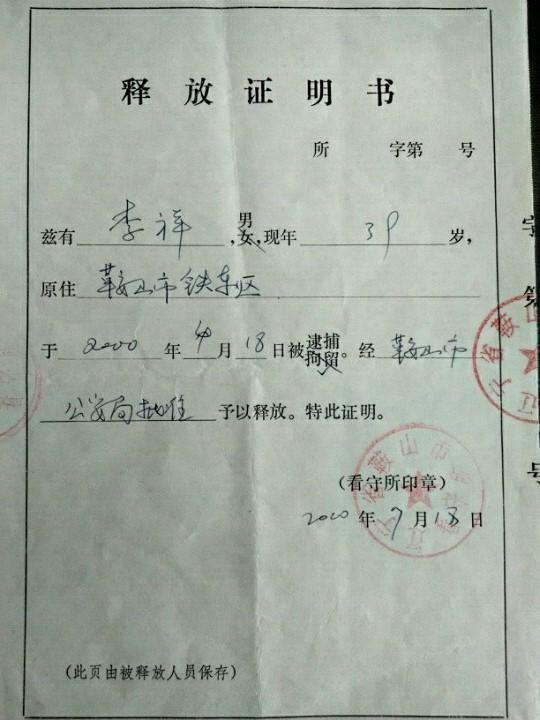 释放证明书
所 字第 号
兹有 李祥 ,男女,现年 39 岁,
原住 鞍山市铁东区
于 2000 年 月 18 日被逮捕拘留。经 鞍山市
公安局批准 予以释放。特此证明。
(看守所印章)
2000 年 7 月 18 日
(此页由被释放人员保存)
字
第
号
辽宁省鞍山
辽宁省鞍山市